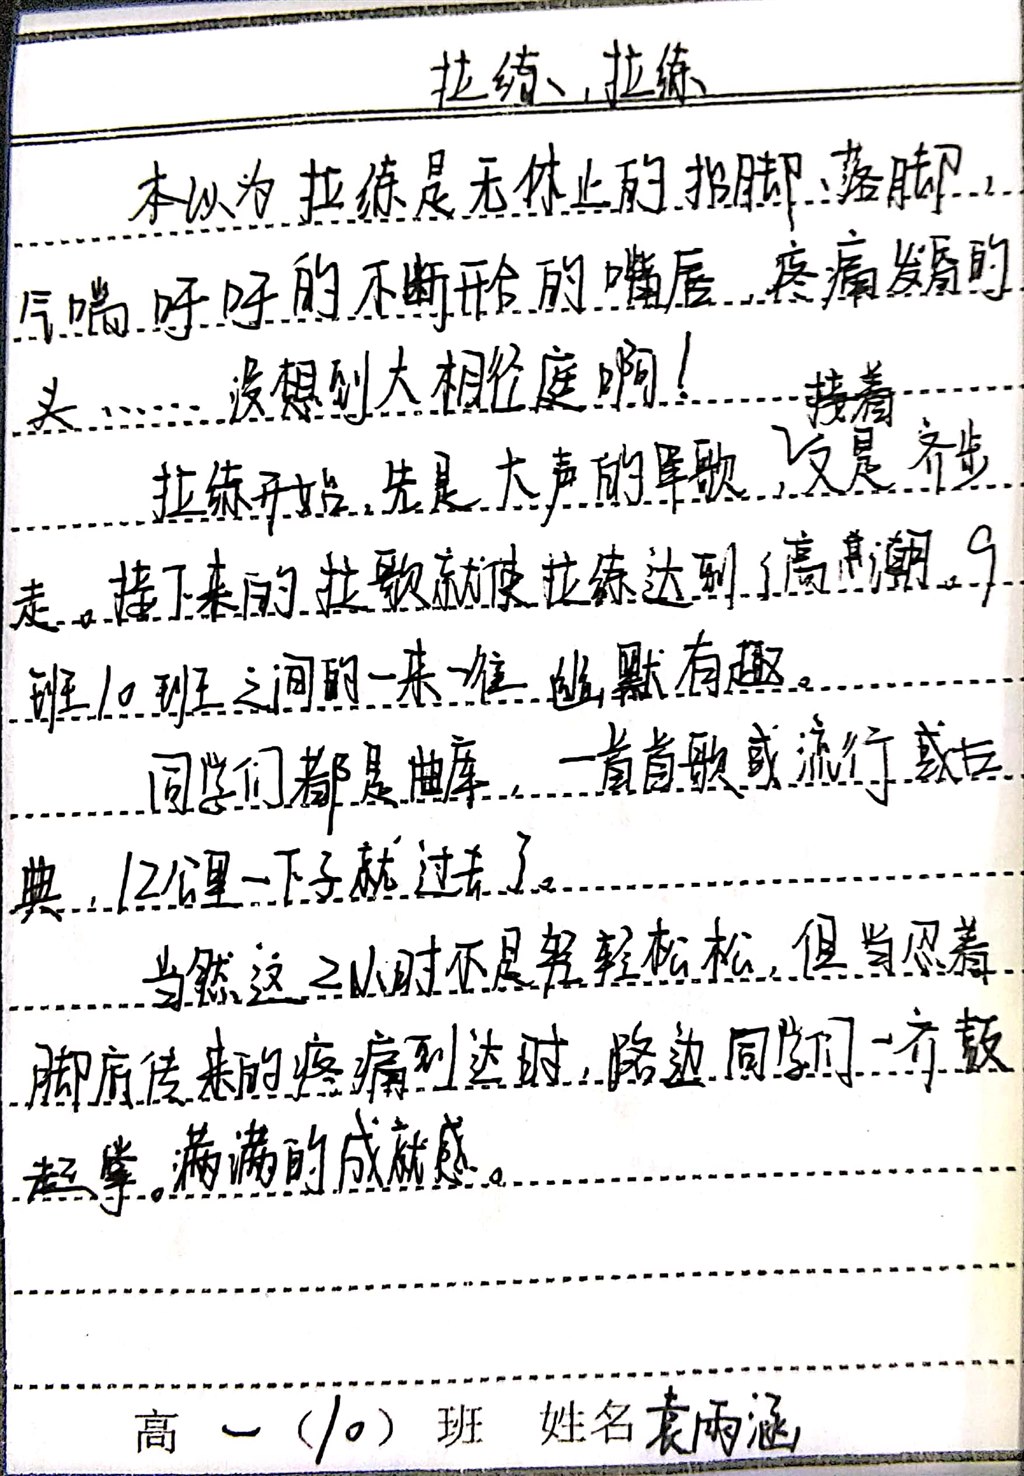 拉练、拉练
本以为拉练是无休止的抬脚、落脚,
气喘吁吁的不断开合的嘴唇,疼痛发昏的
头……没想到大相径庭啊!
拉练开始,先是大声的军歌,接着又是齐步
走。接下来的拉歌就使拉练达到了高潮。9
班10班之间的一来一往幽默有趣。
同学们都是曲库,一首首歌或流行或古
典,12公里一下子就过去了。
当然这2小时还是轻轻松松,但当忍着
脚底传来的疼痛到达时,路边同学们一齐鼓
起掌。满满的成就感。
高一(10)班 姓名袁雨涵